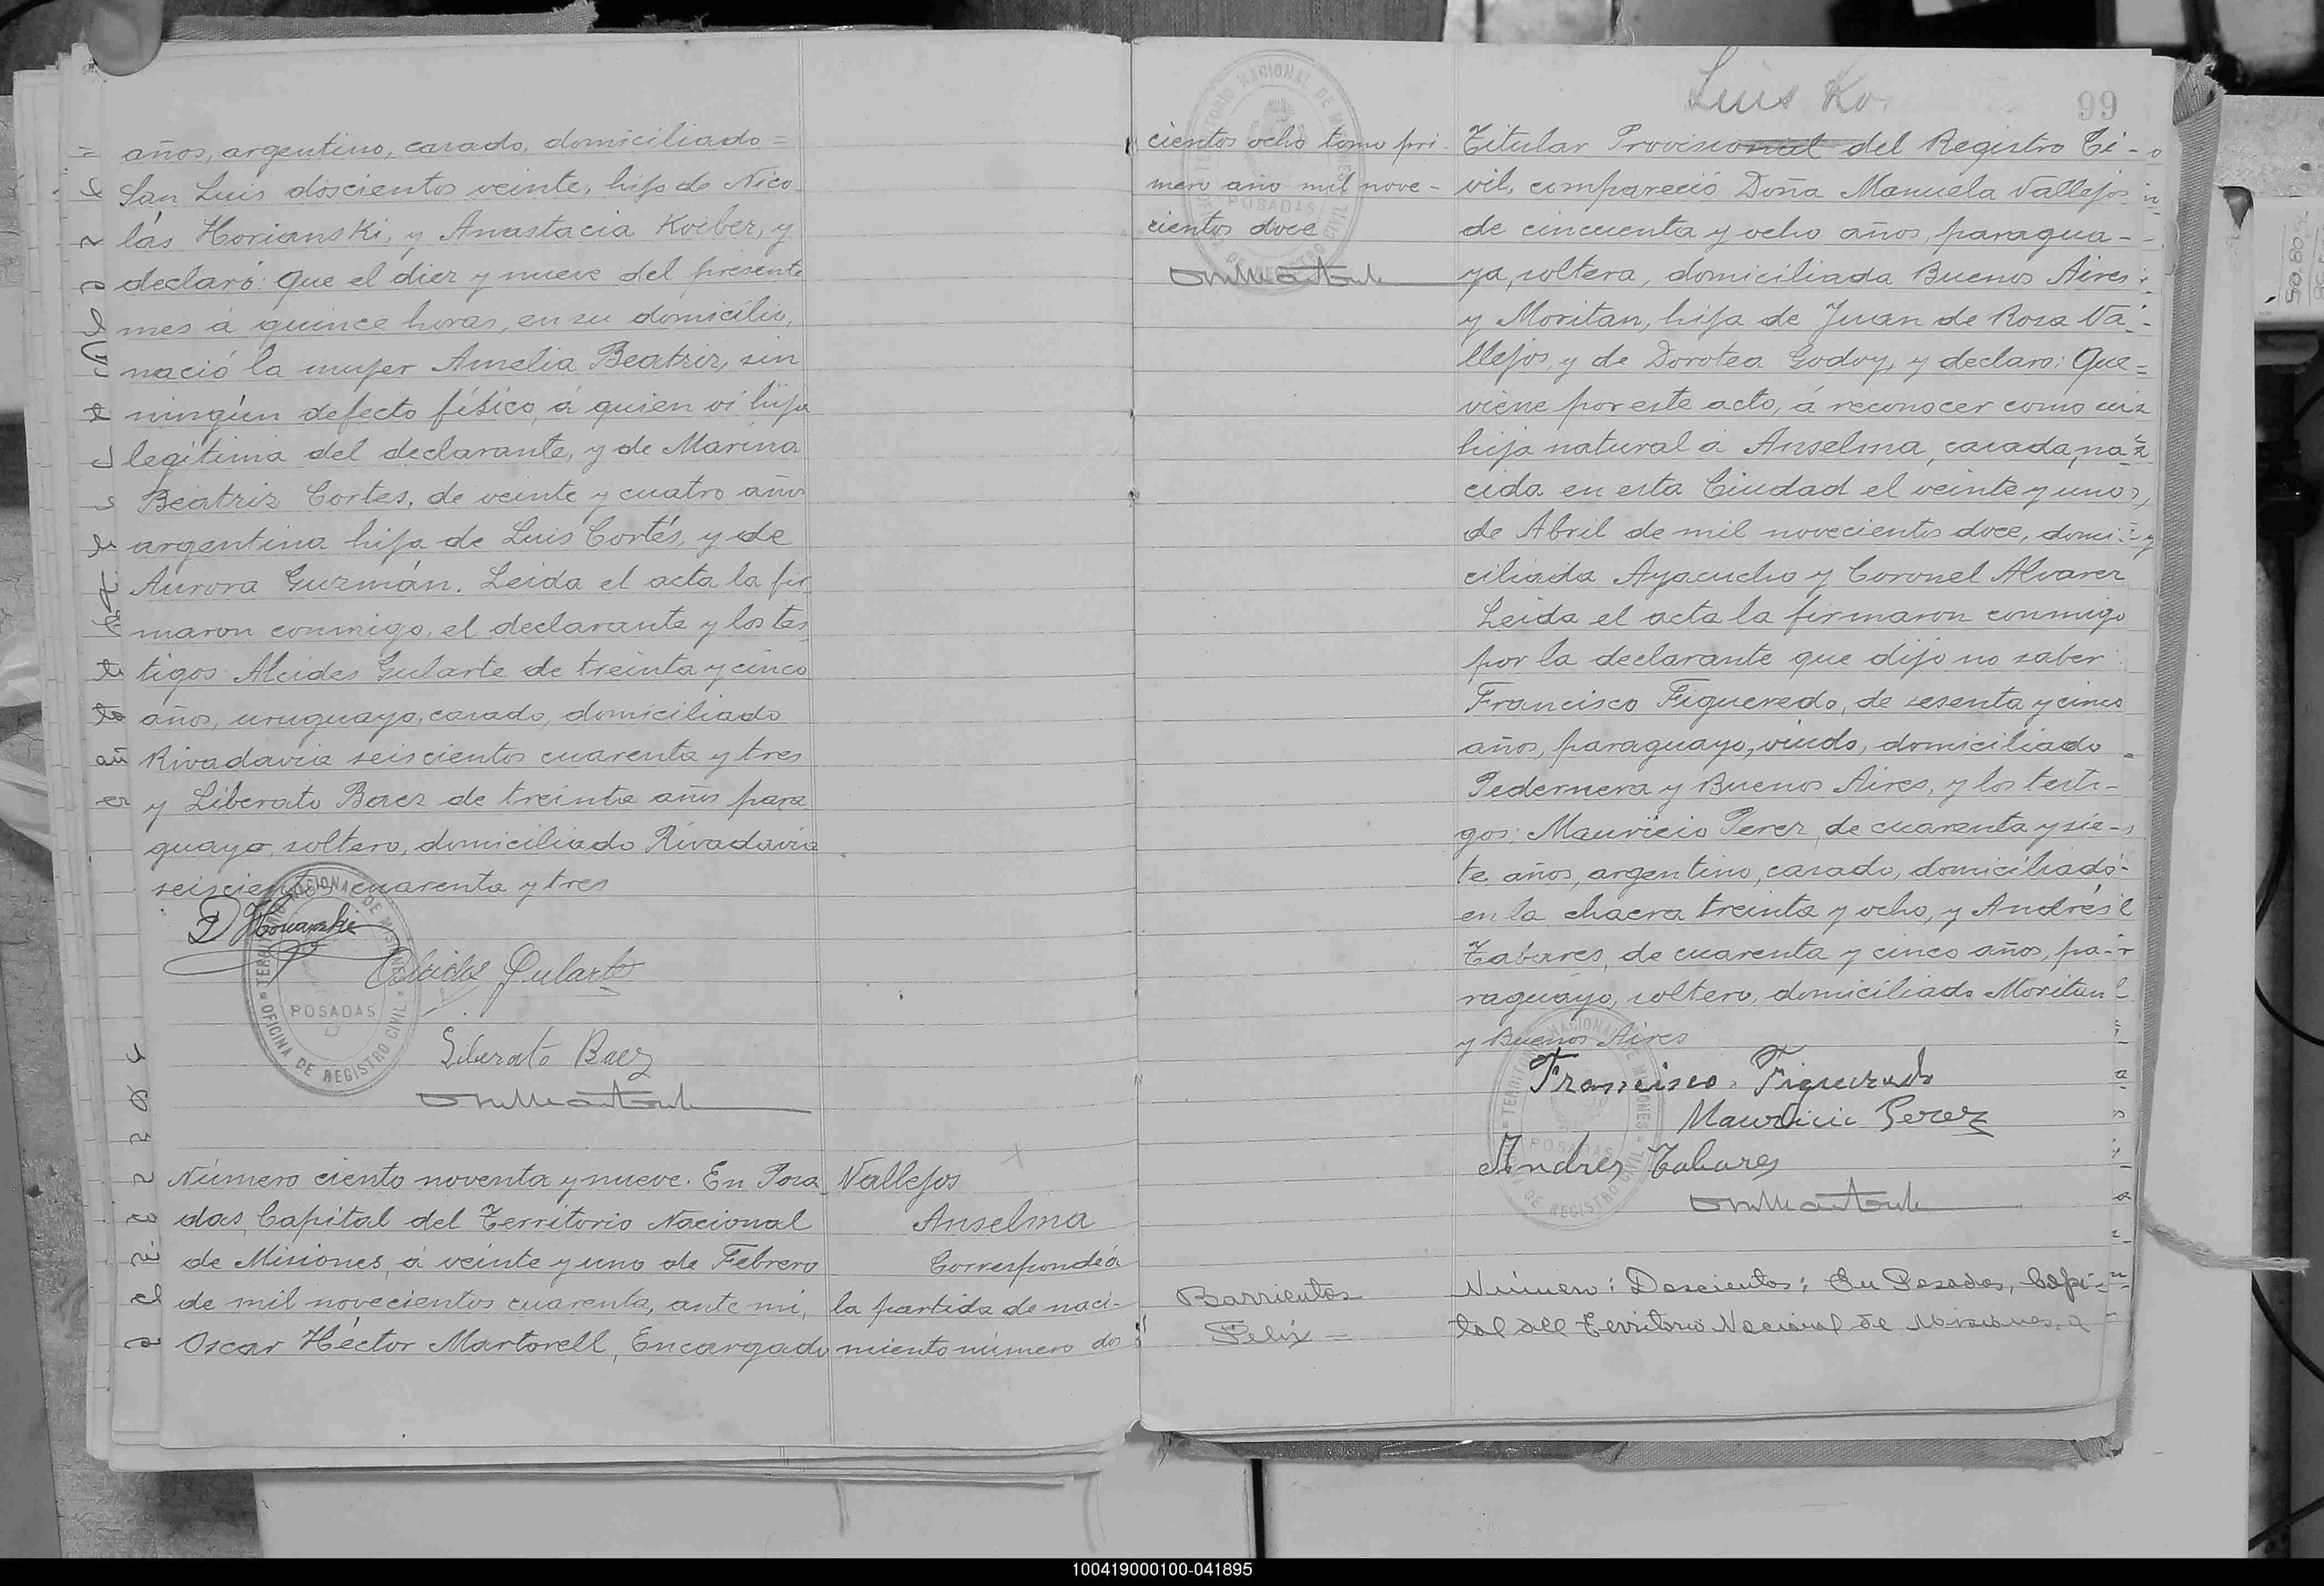 años, argentino, casado, domiciliado =
San Luis doscientos veinte, hijo de Nico
lás Horianski, y Anastacia Koiber, y
declaró: Que el diez y nueve del presente
mes á quince horas, en su domicilio,
nació la mujer Amelia Beatriz, sin
ningún defecto físico, á quien vi hija
legítima del declarante, y de Marina
Beatriz Cortes, de veinte y cuatro años
argentina hija de Luis Cortés, y de
Aurora Guzmán. Leida el acta la fir
maron conmigo, el declarante y los tes
tigos Alcides Gularte de treinta y cinco
años, uruguayo, casado, domiciliado
Rivadavia seiscientos cuarenta y tres
y Liberato Baez de treinta años para
guayo, soltero, domiciliado Rivadavia
seiscientos cuarenta y tres
Alcides Gularte
TERRITORIO NACIONAL DE MISIONES
POSADAS
OFICINA DE REGISTRO CIVIL
Liberato Baez
Número ciento noventa y nueve. En Posa
das, Capital del Territorio Nacional
de Misiones, á veinte y uno de Febrero
de mil novecientos cuarenta, ante mi,
Oscar Héctor Martorell, Encargado
Vallejos
Anselma
Corresponde á
la partida de naci-
miento número dos
cientos ocho tomo pri-
mero año mil nove-
cientos doce
TERRITORIO NACIONAL DE MISIONES
POSADAS
OFICINA DE REGISTRO CIVIL
Luis Ko.
99
Titular Provisional del Registro Ci-
vil, compareció Doña Manuela Vallejos
de cincuenta y ocho años, paragua-
ya, soltera, domiciliada Buenos Aires
y Moritan, hija de Juan de Rosa Va-
llejos, y de Dorotea Godoy, y declaro: Que=
viene por este acto, á reconocer como su
hija natural á Anselma, casada, na
cida en esta Ciudad el veinte y uno
de Abril de mil novecientos doce, domi
ciliada Ayacucho y Coronel Alvarez
Leida el acta la firmaron conmigo
por la declarante que dijo no saber
Francisco Figueredo, de sesenta y cinco
años, paraguayo, viudo, domiciliado
Pedernera y Buenos Aires, y los testi-
gos: Mauricio Perez, de cuarenta y sie-
te años, argentino, casado, domiciliado
en la chacra treinta y ocho, y Andrés
Tabares, de cuarenta y cinco años, pa-
raguayo, soltero, domiciliado Moritan
y Buenos Aires
Francisco Figueredo
Mauricio Perez
Andres Tabares
TERRITORIO NACIONAL DE MISIONES
POSADAS
OFICINA DE REGISTRO CIVIL
Barrientos
Felix =
Número: Doscientos: En Posadas, Capi-
tal del Territorio Nacional de Misiones, a
100419000100-041895